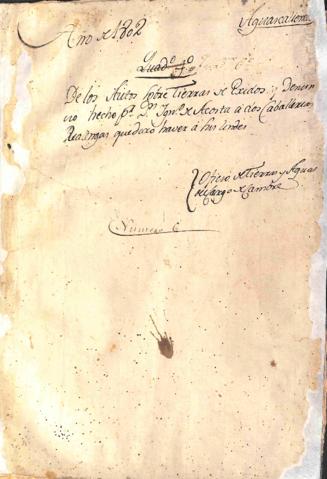 Año de 1802
Aguascalientes
Quadº 1º
De los Autos sobre Tierras de Exidos, y denun
cio hecho pr. Dn. Ignº. de Acosta a dos Caballerias
Realengas que dixo haver à sus lindes
Oficio de Tierras y Aguas
del Cargo de Zambre
Numero 6